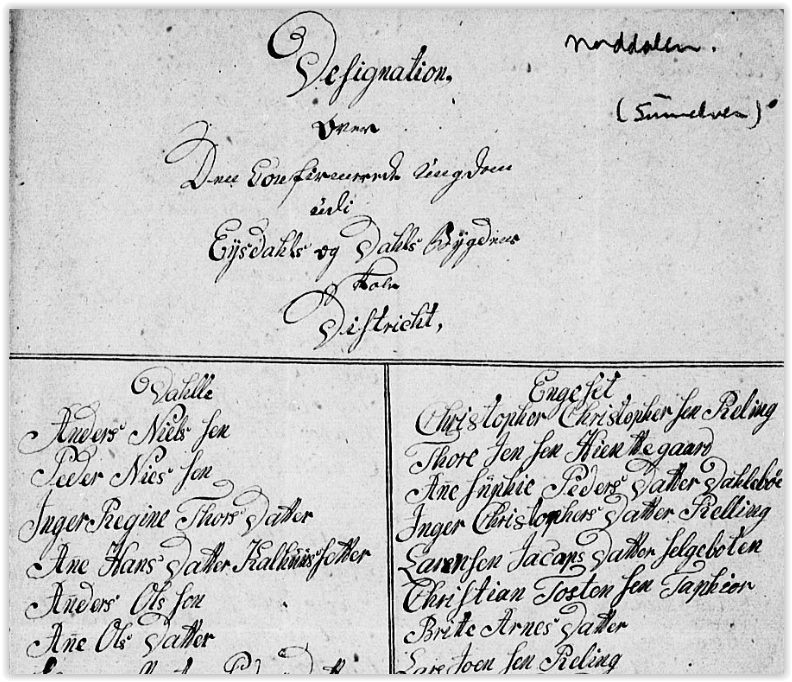 Designation,
Norddalen.
(Sunnelven)
over
Den Confirmerede Ungdom
udi
Eysdahls og Dahls Bÿgdens
Skole
District,
Dahlle
Anders Niels sen
Peder Nies sen
Inger Regine Thors Datter
Ane Hans Datter Kalhuussetter
Anders Ols son
Ane Ols Datter
Engeset
Christopher Christopher sen Reling
Thore Jen sen Kien Megaard
Ane Süphie Peders Datter Dahlebøe
Inger Christophers Datter Relling
Larensen Jacaps Datter selgeboten
Christian Tosten sen Taphior
Britte Arnes Datter
Lars Joen sen Reling